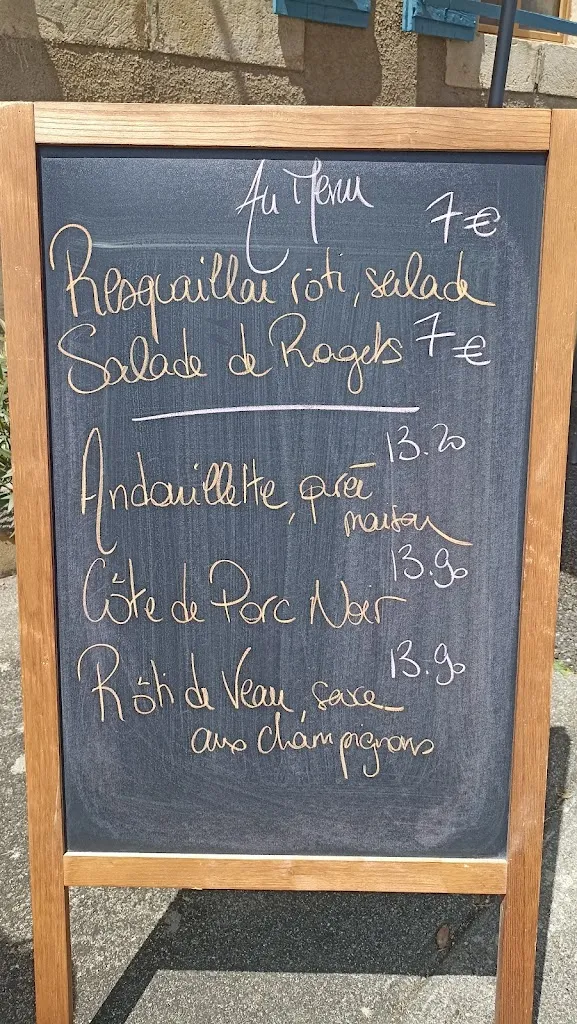 Au Menu
7 €
Resquaillar rôti, salade
Salade de Rogets 7 €
13.20
Andouillette, purée
maison
13.90
Côte de Porc Noir
13.90
Rôti de Veau, sauce
aux champignons